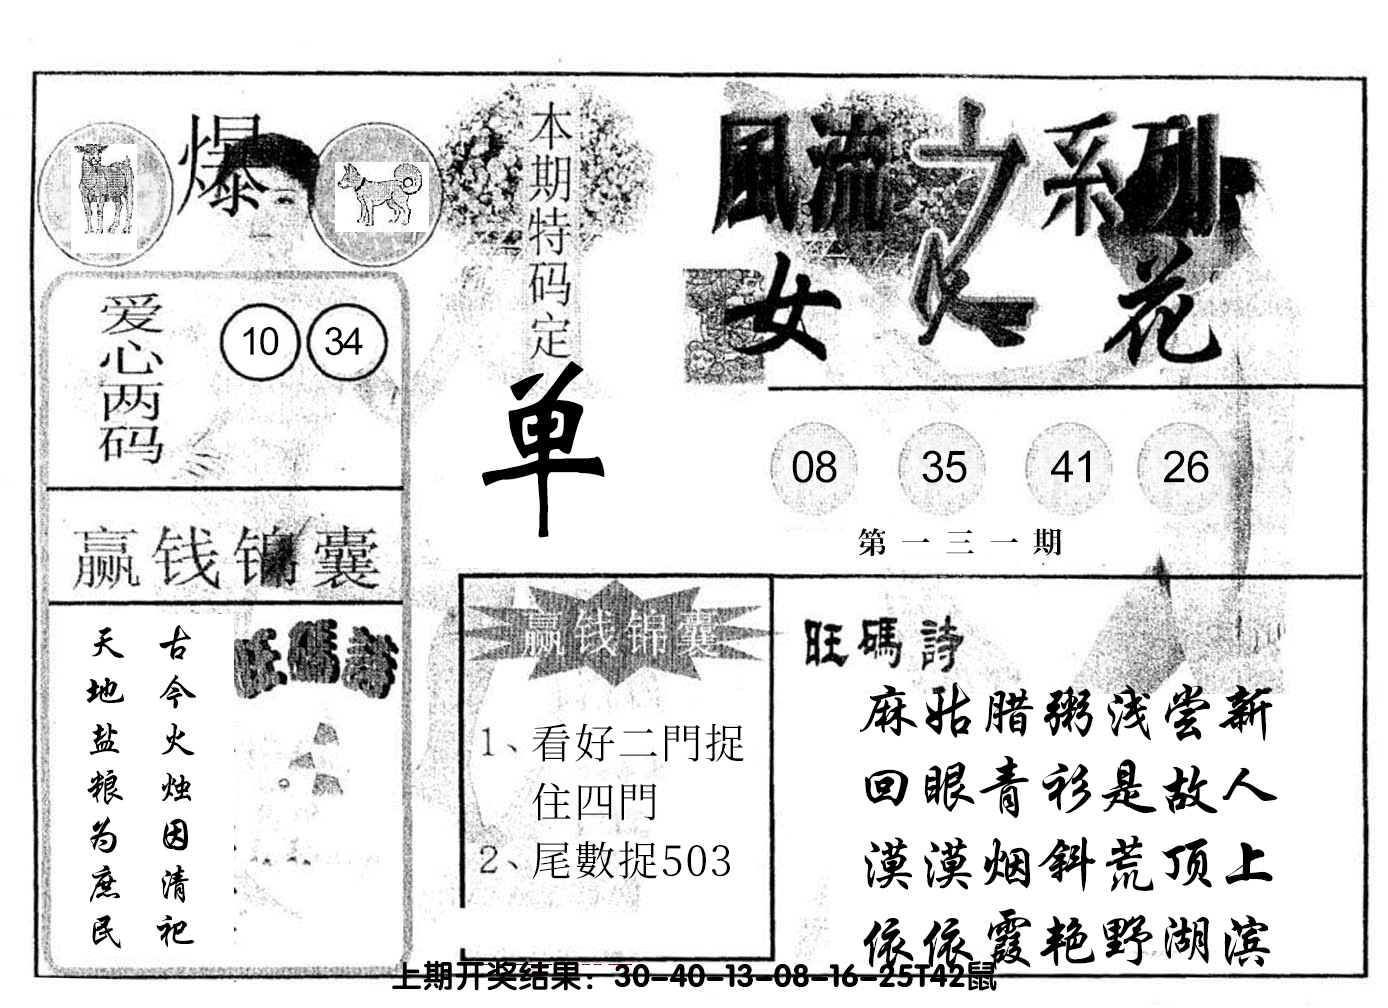 爆
本期特码定
单
風流之系列
女人花
爱心两码
10 34
08 35 41 26
第一三一期
赢钱锦囊
古今火烛因清祀
天地盐粮为庶民
旺碼詩
赢钱锦囊
1、看好二門捉
住四門
2、尾數捉503
旺碼詩
麻姑腊粥浅尝新
回眼青衫是故人
漠漠烟斜荒顶上
依依霞艳野湖滨
上期开奖结果：30-40-13-08-16-25T42鼠